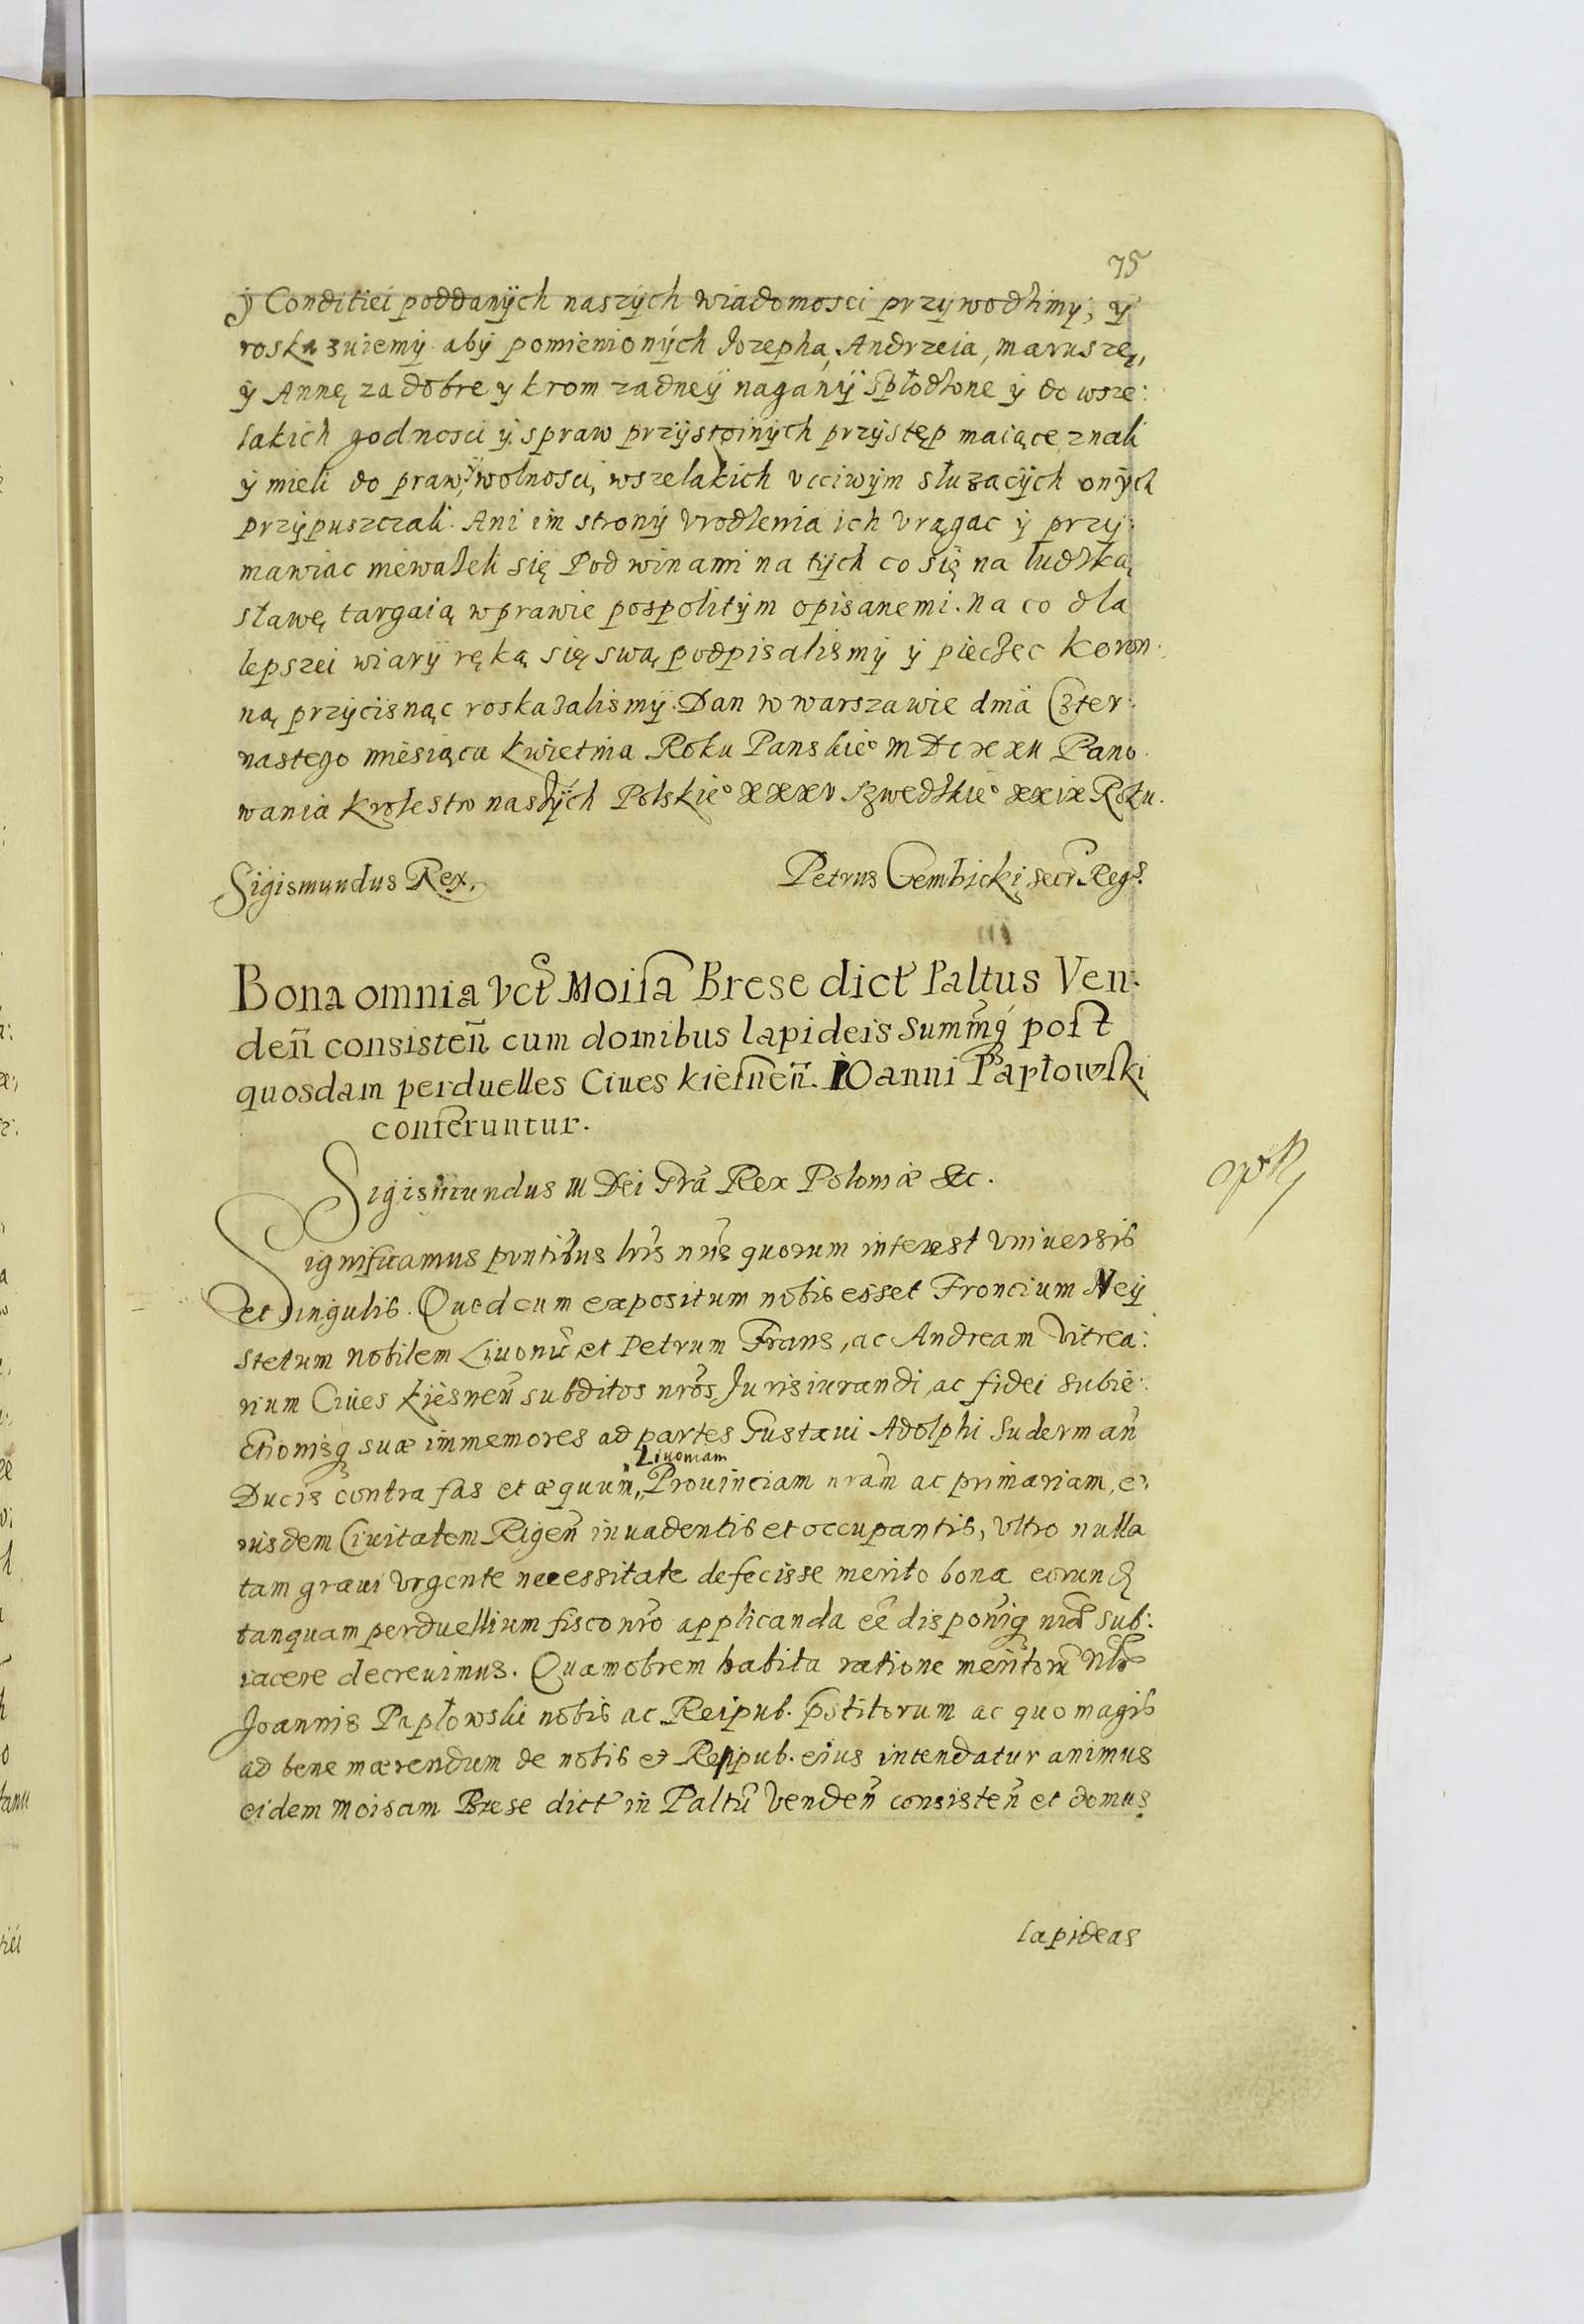 75
y Conditiei poddanÿch naszÿch wiadomosci przywodzimy; y
roskazuiemy abÿ pomienionÿch Jozepha, Andrzeia, maruszę,
ÿ Annę za dobre y krom zadneÿ naganÿ spłodzone ÿ do wsze:
lakich godnosci ÿ spraw przÿstoinÿch przÿstęp maiące znali
ÿ mieli do praw, ÿ wolnosci, wszelakich vcciwÿm słuzacÿch onÿch
przÿpuszczali. Ani im stronÿ vrodzenia ich vrągac ÿ przy:
mawiac niewazeli się Pod winami na tÿch co się na ludzką
sławę targaią w prawie pospolitÿm opisanemi. na co dla
lepszei wiarÿ ręką się swą podpisalismÿ ÿ piecżęc koron:
ną przÿcisnąc roskazalismÿ. Dan w warszawie dnia Czter:
nastego miesiąca kwietnia Roku Panskieo MDCXXII Pano
wania krolestw naszÿch Polskieo XXXV Szwedzkieo XXIX Roku.
Sigismundus Rex.
Petrus Gembicki secr̃ Regs.
Bona omnia vct Moisa Brese dict Paltus Ven:
deñ consisteñ cum domibus lapideis Summq́ post
quosdam perduelles Ciues kiesneñ. IOanni Papłowski
conferuntur.
Sigismundus III Dei Gra Rex Poloniæ &c.
Significamus pntibus lris nris quorum interest vniuersis
et singulis. Quod cum expositum nobis esset Froncium Neÿ
stetum nobilem Liuonũ et Petrum Frans, ac Andream Vitrea:
rium Ciues kiesneñ subditos nros Jurisiurandi, ac fidei subie:
ctionisq suæ immemores ad partes Gustaui Adolphi Sudermañ
Ducis contra fas et æquum, Prouinciam nram ac primariam, e:
Liuoniam
iusdem Ciuitatem Rigeñ inuadentis et occupantis, vltro nulla
tam graui vrgente necessitate defecisse merito bona eorund
tanquam perduellium fisco nro applicanda eẽ disponiq sub:
iacere decreuimus. Quamobrem habita ratione meritorũ Nblis
Joannis Papłowski nobis ac Reipub. pstitorum ac quo magis
ad bene merendum de nobis et Reipub. eius intendatur animus
eidem moisam Brese dict in Paltũ Vendeñ consisteñ et domus
lapideas